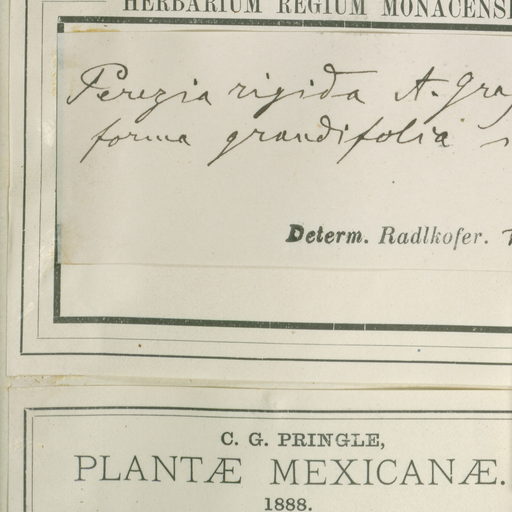 HERBARIUM REGIUM MONACENS
Perezia rigida A. Gray
forma grandifolia
Determ. Radlkofer.
C. G. PRINGLE,
PLANTÆ MEXICANÆ.
1888.